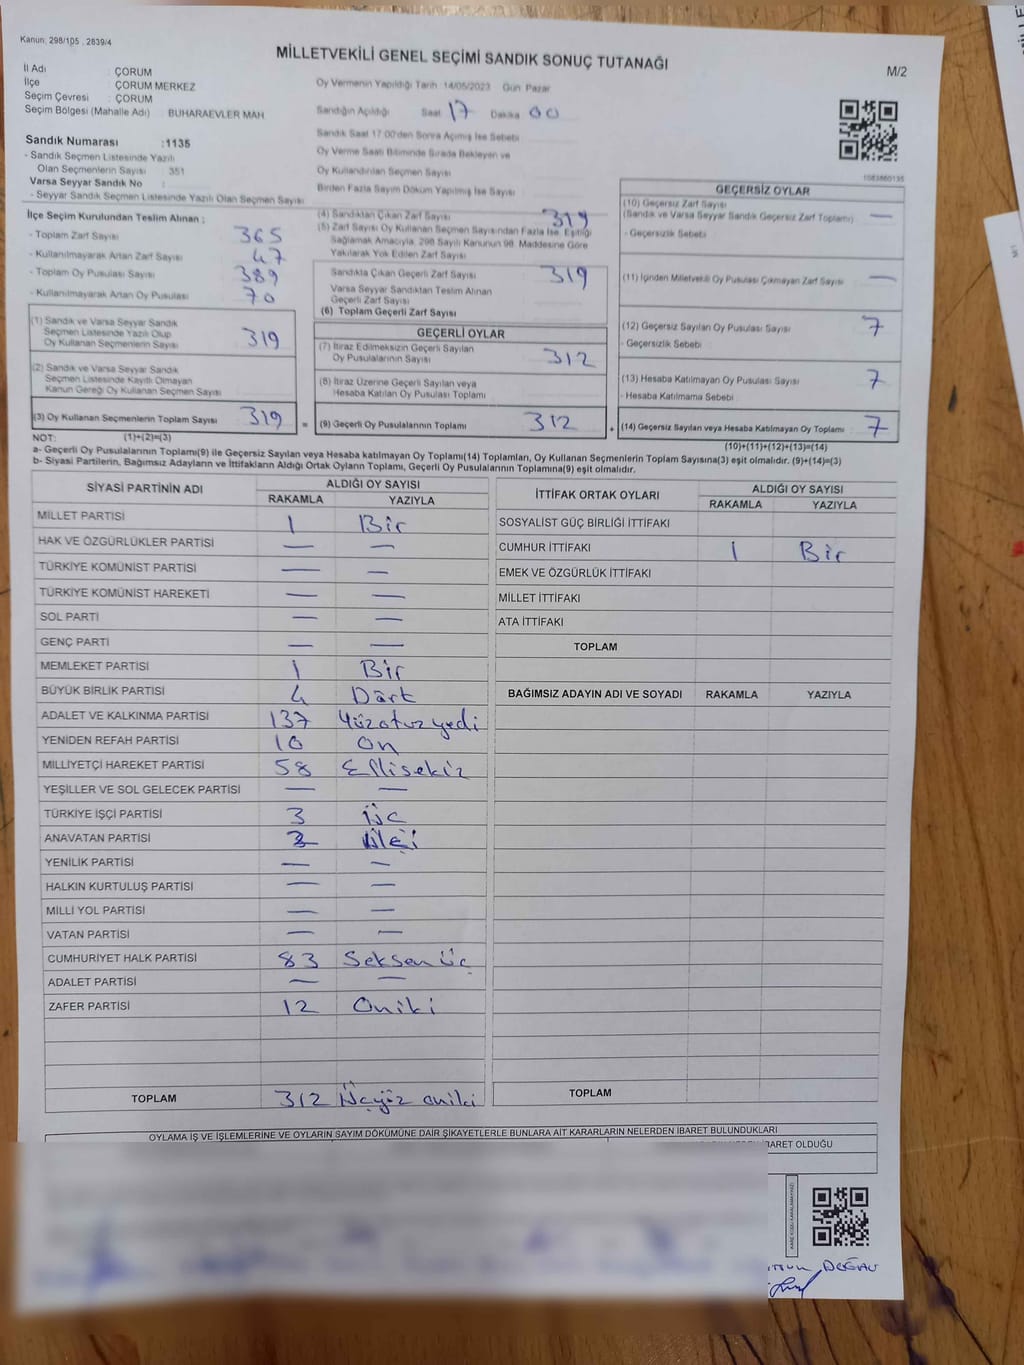 Kanun: 298/105 , 2839/4
MİLLETVEKİLİ GENEL SEÇİMİ SANDIK SONUÇ TUTANAĞI
M/2
İl Adı : ÇORUM
İlçe : ÇORUM MERKEZ
Seçim Çevresi : ÇORUM
Seçim Bölgesi (Mahalle Adı) : BUHARAEVLER MAH
Sandık Numarası :1135
- Sandık Seçmen Listesinde Yazılı
Olan Seçmenlerin Sayısı : 351
Varsa Seyyar Sandık No :
- Seyyar Sandık Seçmen Listesinde Yazılı Olan Seçmen Sayısı
Oy Vermenin Yapıldığı Tarih 14/05/2023 Gün Pazar
Sandığın Açıldığı Saat 17 Dakika 00
Sandık Saat 17.00'den Sonra Açımış İse Sebebi
Oy Verme Saati Bitiminde Sırada Bekleyen ve
Oy Kullandırılan Seçmen Sayısı
Birden Fazla Sayım Döküm Yapılmış İse Sayısı
1083860135
İlçe Seçim Kurulundan Teslim Alınan ;
- Toplam Zarf Sayısı 365
- Kullanılmayarak Artan Zarf Sayısı 47
- Toplam Oy Pusulası Sayısı 389
- Kullanılmayarak Artan Oy Pusulası 70
(1) Sandık ve Varsa Seyyar Sandık
Seçmen Listesinde Yazılı Olup
Oy Kullanan Seçmenlerin Sayısı 319
(2) Sandık ve Varsa Seyyar Sandık
Seçmen Listesinde Kayıtlı Olmayan
Kanun Gereği Oy Kullanan Seçmen Sayısı
(3) Oy Kullanan Seçmenlerin Toplam Sayısı 319 =
(4) Sandıktan Çıkan Zarf Sayısı 319
(5) Zarf Sayısı Oy Kullanan Seçmen Sayısından Fazla İse, Eşitliği
Sağlamak Amacıyla, 298 Sayılı Kanunun 98. Maddesine Göre
Yakılarak Yok Edilen Zarf Sayısı
Sandıkta Çıkan Geçerli Zarf Sayısı 319
Varsa Seyyar Sandıktan Teslim Alınan
Geçerli Zarf Sayısı
(6) Toplam Geçerli Zarf Sayısı
GEÇERLİ OYLAR
(7) İtiraz Edilmeksizin Geçerli Sayılan
Oy Pusulalarının Sayısı 312
(8) İtiraz Üzerine Geçerli Sayılan veya
Hesaba Katılan Oy Pusulası Toplamı
(9) Geçerli Oy Pusulalarının Toplamı 312 +
GEÇERSİZ OYLAR
(10) Geçersiz Zarf Sayısı
(Sandık ve Varsa Seyyar Sandık Geçersiz Zarf Toplamı) —
- Geçersizlik Sebebi
(11) İçinden Milletvekili Oy Pusulası Çıkmayan Zarf Sayısı —
(12) Geçersiz Sayılan Oy Pusulası Sayısı 7
- Geçersizlik Sebebi
(13) Hesaba Katılmayan Oy Pusulası Sayısı 7
- Hesaba Katılmama Sebebi
(14) Geçersiz Sayılan veya Hesaba Katılmayan Oy Toplamı 7
NOT: (1)+(2)=(3) (10)+(11)+(12)+(13)=(14)
a- Geçerli Oy Pusulalarının Toplamı(9) ile Geçersiz Sayılan veya Hesaba katılmayan Oy Toplamı(14) Toplamları, Oy Kullanan Seçmenlerin Toplam Sayısına(3) eşit olmalıdır. (9)+(14)=(3)
b- Siyasi Partilerin, Bağımsız Adayların ve İttifakların Aldığı Ortak Oyların Toplamı, Geçerli Oy Pusulalarının Toplamına(9) eşit olmalıdır.
SİYASİ PARTİNİN ADI ALDIĞI OY SAYISI
RAKAMLA YAZIYLA
MİLLET PARTİSİ 1 Bir
HAK VE ÖZGÜRLÜKLER PARTİSİ — —
TÜRKİYE KOMÜNİST PARTİSİ — —
TÜRKİYE KOMÜNİST HAREKETİ — —
SOL PARTİ — —
GENÇ PARTİ — —
MEMLEKET PARTİSİ 1 Bir
BÜYÜK BİRLİK PARTİSİ 4 Dört
ADALET VE KALKINMA PARTİSİ 137 Yüzotuzyedi
YENİDEN REFAH PARTİSİ 10 On
MİLLİYETÇİ HAREKET PARTİSİ 58 Ellisekiz
YEŞİLLER VE SOL GELECEK PARTİSİ — —
TÜRKİYE İŞÇİ PARTİSİ 3 Üç
ANAVATAN PARTİSİ 2 iki
YENİLİK PARTİSİ — —
HALKIN KURTULUŞ PARTİSİ — —
MİLLİ YOL PARTİSİ — —
VATAN PARTİSİ — —
CUMHURİYET HALK PARTİSİ 83 Seksen üç
ADALET PARTİSİ — —
ZAFER PARTİSİ 12 Oniki
TOPLAM 312 Üçyüz oniki
İTTİFAK ORTAK OYLARI ALDIĞI OY SAYISI
RAKAMLA YAZIYLA
SOSYALİST GÜÇ BİRLİĞİ İTTİFAKI
CUMHUR İTTİFAKI 1 Bir
EMEK VE ÖZGÜRLÜK İTTİFAKI
MİLLET İTTİFAKI
ATA İTTİFAKI
TOPLAM
BAĞIMSIZ ADAYIN ADI VE SOYADI RAKAMLA YAZIYLA
TOPLAM
OYLAMA İŞ VE İŞLEMLERİNE VE OYLARIN SAYIM DÖKÜMÜNE DAİR ŞİKAYETLERLE BUNLARA AİT KARARLARIN NELERDEN İBARET BULUNDUKLARI
İBARET OLDUĞU
DOĞAN